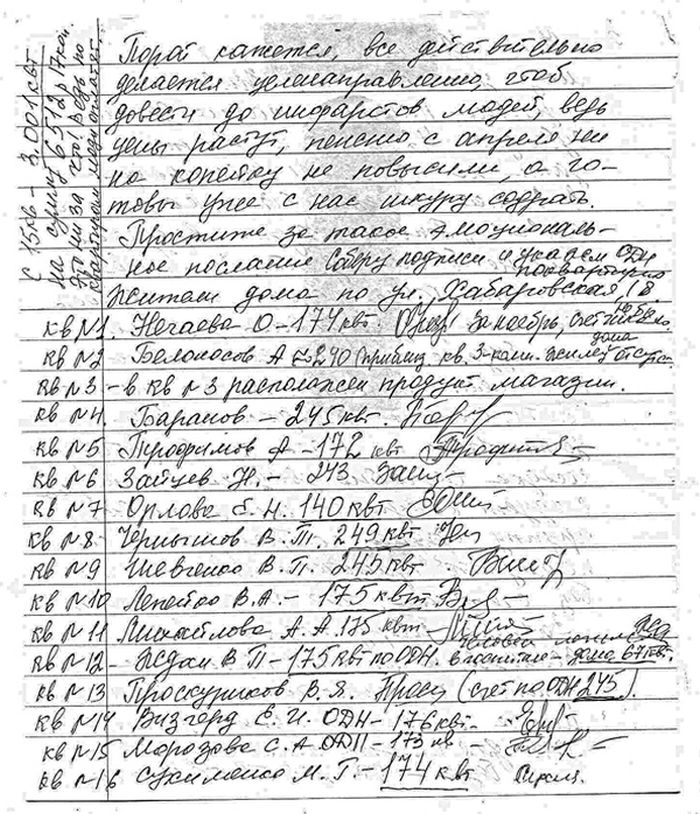 С 15 кв - 3.001 квт
на сумму 6512 р 17 коп.
Это ни за что! ведь по
квартирам люди оплатят
Порой кажется, все действительно
делается целенаправленно, чтоб
довести до инфарктов людей, ведь
цены растут, пенсию с апреля ни
на копейку не повысили, а го-
товы уже с нас шкуру содрать.
Простите за такое эмоциональ-
ное послание Соберу подписи и укажем ОДН
поквартирно
Жители дома по ул. Хабаровская, 18
кв N1. Нечаева О - 174 квт. за ноябрь, счет
кв N2 Белоносов А ≈ 240 приблиз кв. 3-комн. жилец
дома
кв N3 - в кв N3 расположен продукт. магазин.
кв N4. Баранов - 245 квт.
кв N5 Трофимов А - 172 квт
кв N6 Зайцев Н. - 243
кв N7 Орлова Е. Н. 140 квт
кв N8 Чернышов В. П. 249 квт
кв N9 Шевченко В. П. 245 квт
кв N10 Лепейко В.А. - 175 квт
кв N11 Михайлова А. А. 175 квт
кв N12 - Ждан В П - 175 квт по ОДН. дома 67 квт.
кв N13 Проскуряков В. Я. (счет по ОДН 245).
кв N14 Визгерд Е. И. ОДН - 176 квт -
кв N15 Морозова С. А ОДН - 173 кв
кв N16 Сухименко М. Г. - 174 квт